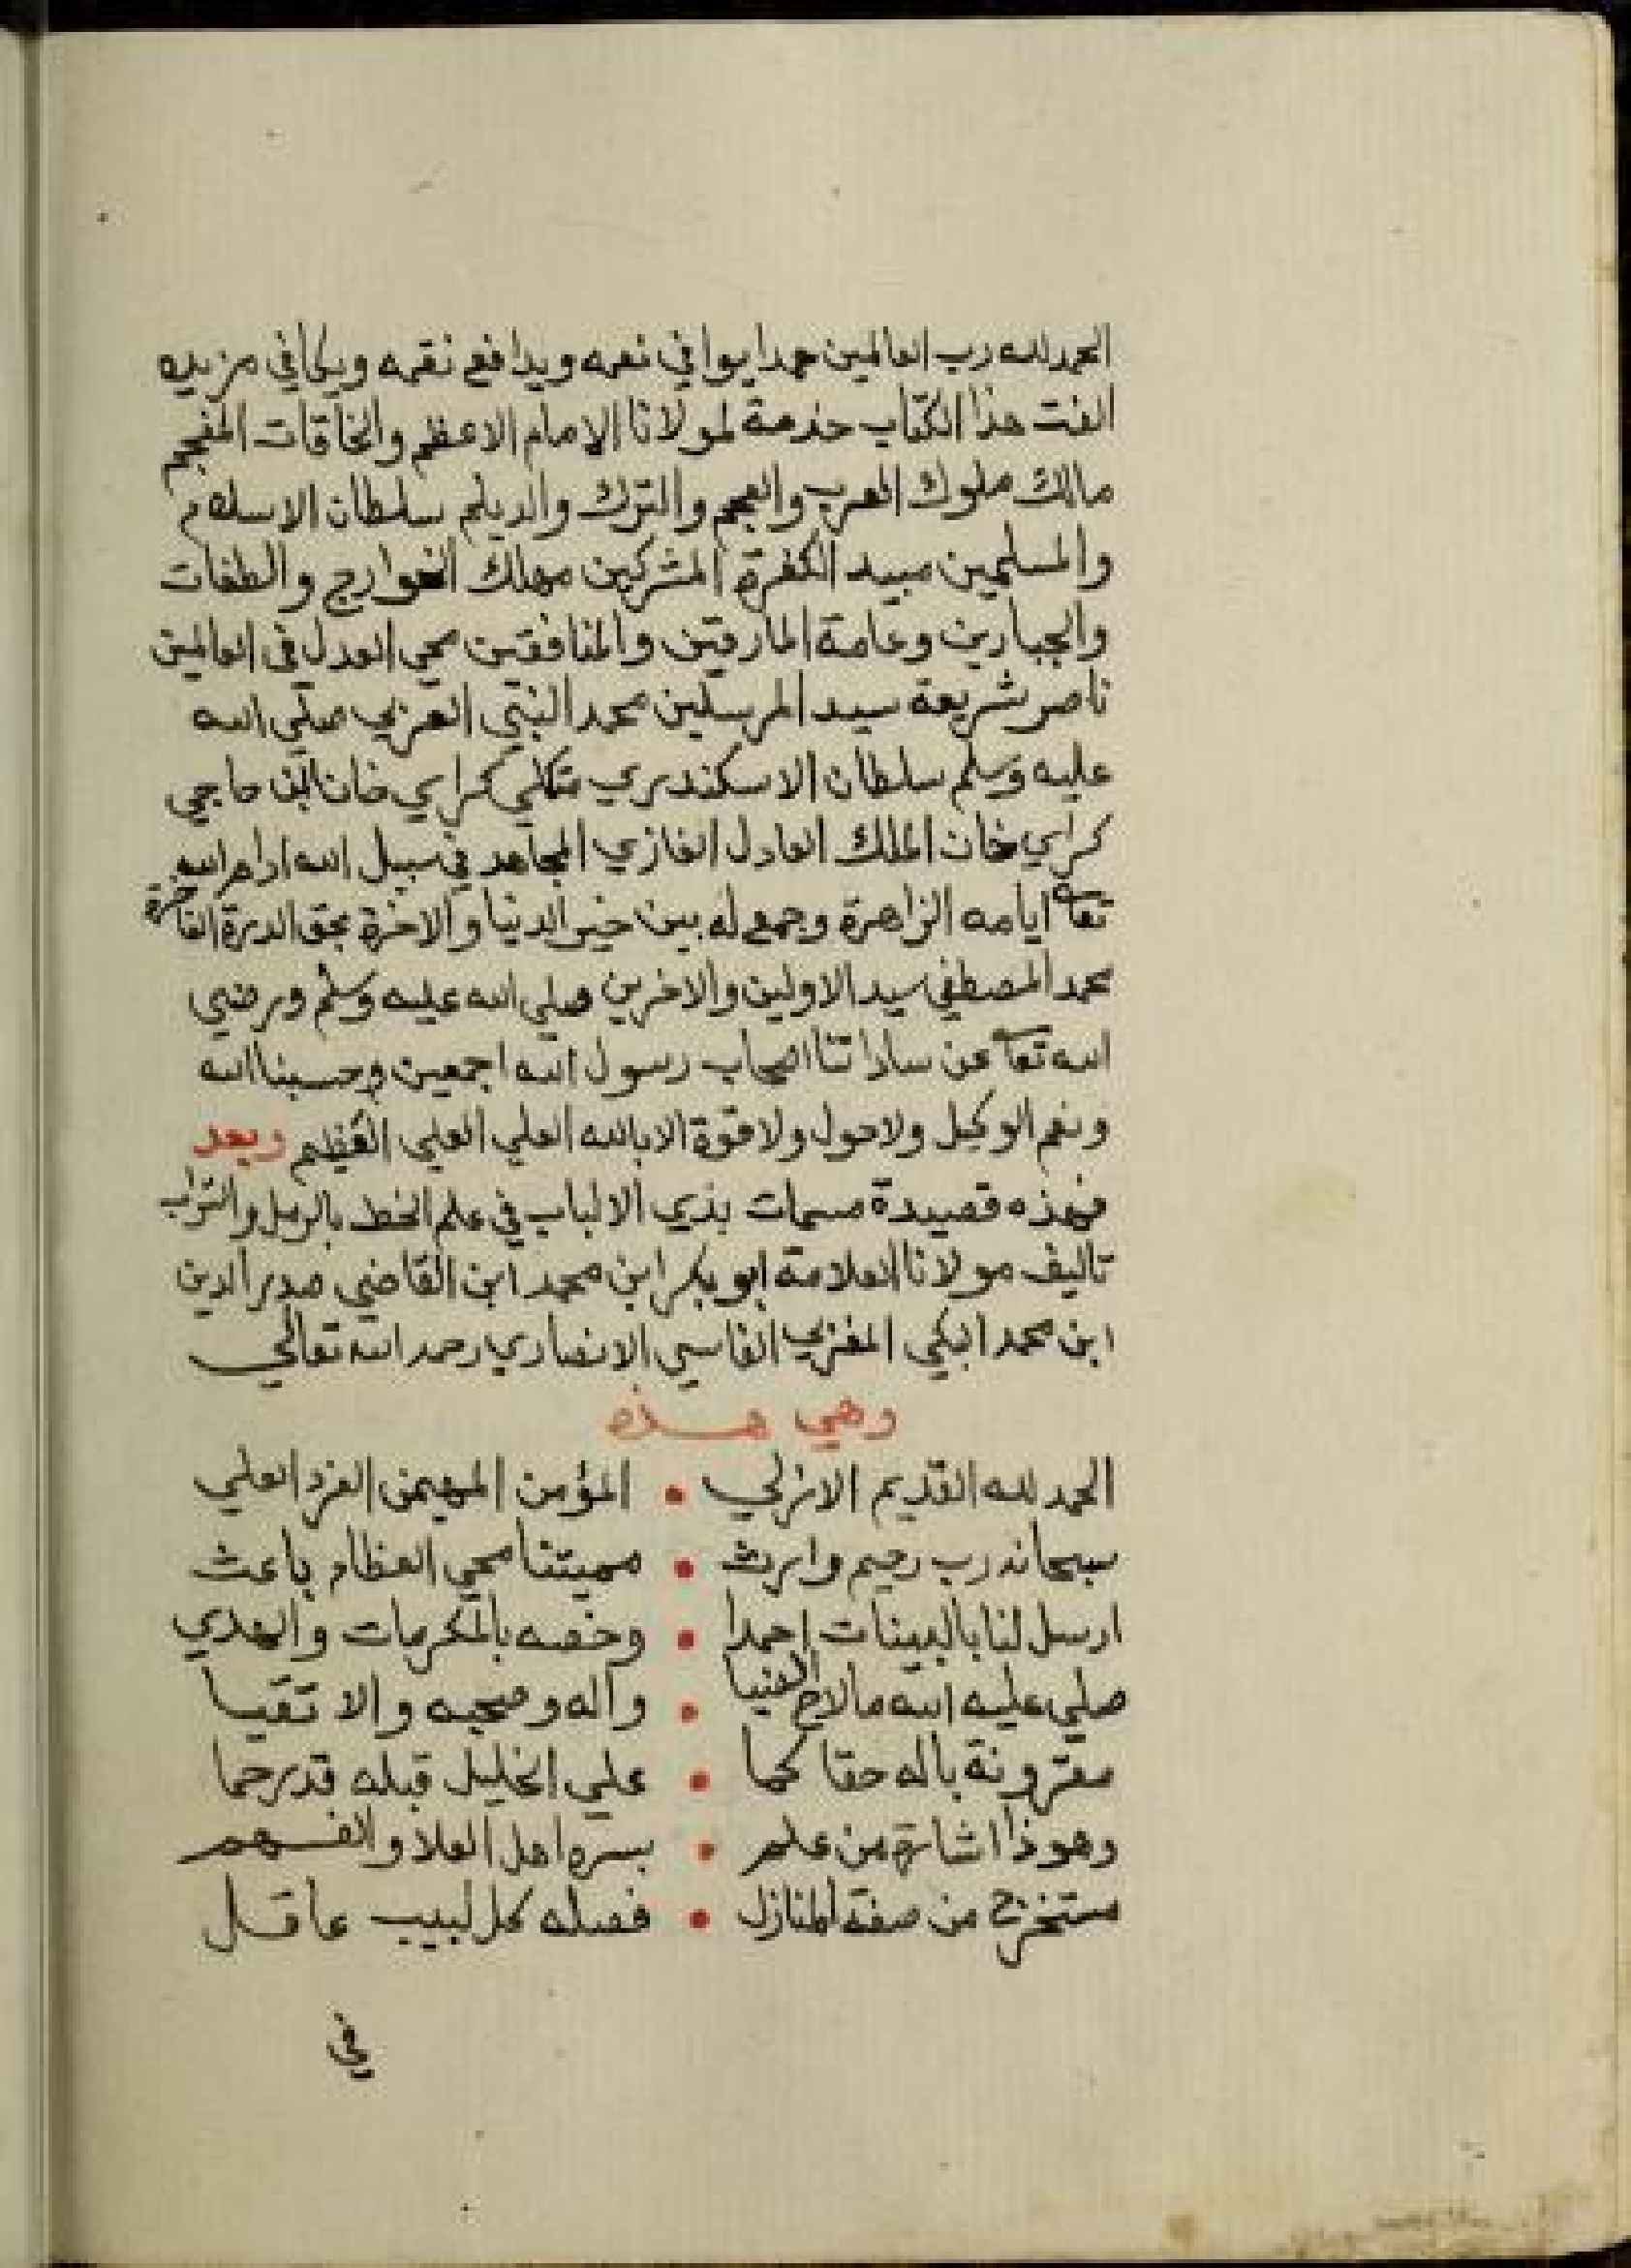 الحمد لله رب العالمين حمدا يوافي نعمه ويدافع نقمه ويكافي مزيده
الفت هذا الكتاب خذمة لمولانا الإمام الاعظم والخاقات المفجم
مالك ملوك العرب والعجم والترك والديلم سلطان الاسلام
والمسلمين مبيد الكفرة المشركين مهلك الخوارج والطغات
والجبارين وعامة المارقين والمنافقين محي العدل في العالمين
ناصر شريعة سيد المرسلين محمد النبي العربي صلي الله
عليه وسلم سلطان الاسكندري منكلي كراي خان ابن حاجي
كراي خان الملك العادل الغازي المجاهد في سبيل الله ادام الله
تعا ايامه الزاهرة وجمع له بين خير الدنيا والاخرة بحق الدرة الفاخرة
محمد المصطفي سيد الاولين والاخرين صلي الله عليه وسلم ورضي
الله تعا عن ساداتنا اصحاب رسول الله اجمعين وحسبنا الله
ونعم الوكيل ولا حول ولا قوة الا بالله العلي العلي العظيم وبعد
فهذه قصيدة مسمات بذي الالباب في علم الخط بالرمل والتراب
تاليف مولانا العلامة ابو بكر ابن محمد ابن القاضي صدر الدين
ابن محمد البكي المغربي الفاسي الانصاري رحمه الله تعالي
وهي هذه
الحمد لله القديم الازلي • المؤمن المهيمن الفرد العلي
سبحانه رب رحيم وارث • مميتنا محي العظام باعث
ارسل لنا بالبينات احمدا • وخصه بالمكرمات والهدي
صلي عليه الله ما لاح الضيا • واله وصحبه والاتقيا
مقرونة باله حقا كما • علي الخليل قبله قد رحما
وهو ذا اشاة من علم • بسره اهل العلا والفهم
مستخرج من صفة المنازل • فصله كل لبيب عاقل
في